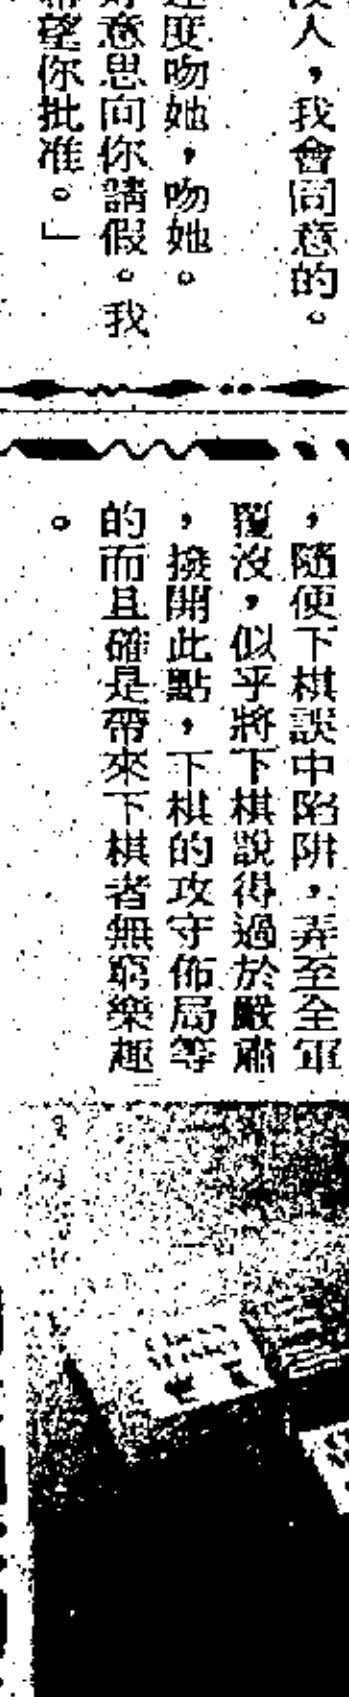 人，我會同意的。
度吻她，吻她。
意思向你請假。我
望你批准。」
，隨便下棋誤中陷阱，弄至全軍
覆沒，似乎將下棋說得過於嚴肅
，撥開此點，下棋的攻守佈局等
的而且確是帶來下棋者無窮樂趣
。